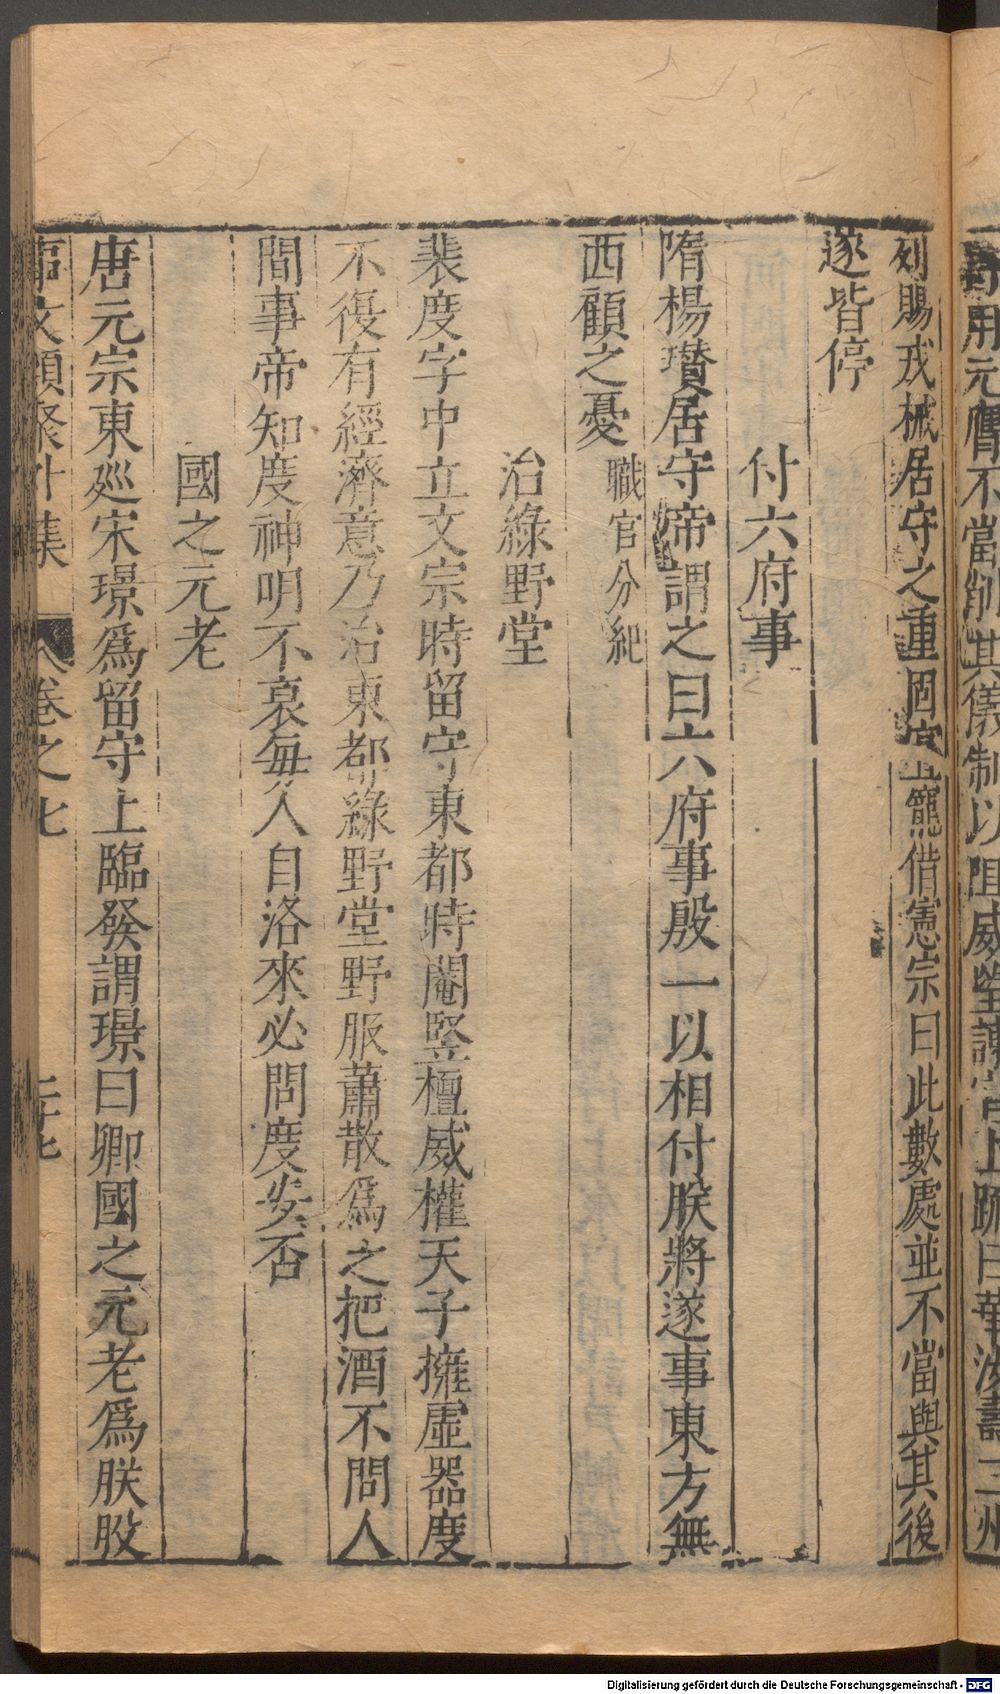 用元膺不當削其儀制以沮威望諫官上疏曰華汝壽三州
列賜戎械居守之重固宜寵借憲宗曰此數處並不當與其後
遂皆停
付六府事
隋楊瓚居守帝謂之曰六府事殷一以相付朕將遂事東方無
西顧之憂 職官分紀
治綠野堂
裴度字中立文宗時留守東都時閹竪檀威權天子擁虛器度
不復有經濟意乃治東都綠野堂野服蕭散爲之把酒不問人
間事帝知度神明不衰每人自洛來必問度安否
國之元老
唐元宗東廵宋璟爲留守上臨發謂璟曰卿國之元老爲朕股
事文類聚外集 卷之七
Digitalisierung gefördert durch die Deutsche Forschungsgemeinschaft - DFG